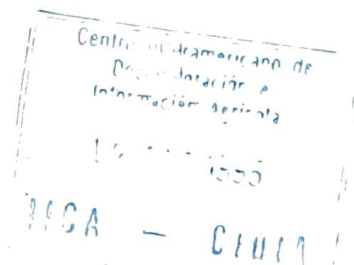 Centro Interamericano de
Documentación e
Información Agrícola
IICA — CIDIA